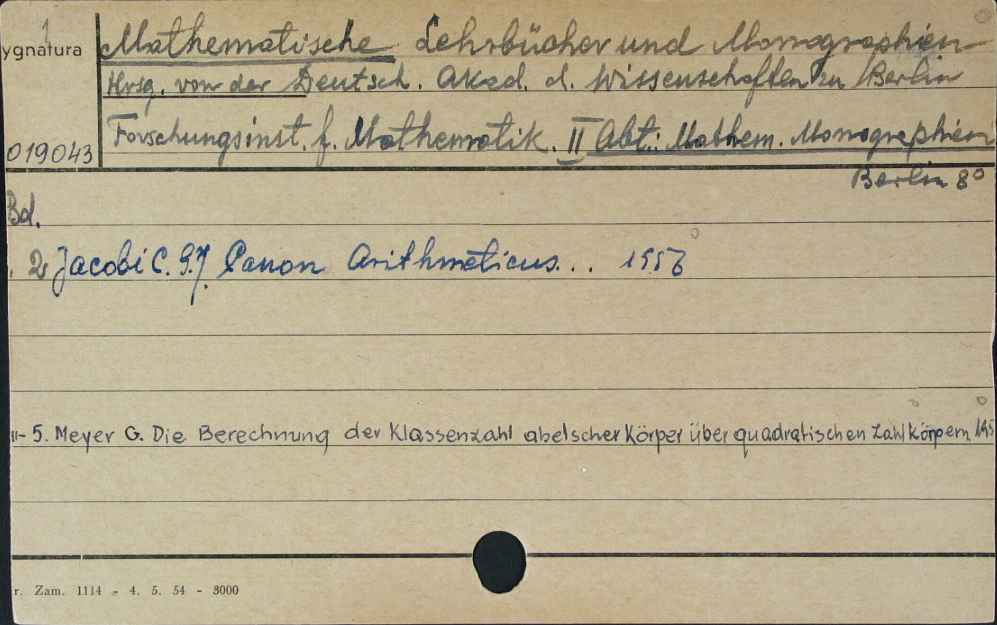 ygnatura
Mathematische Lehrbücher und Monographien
Hrsg. von der Deutsch. Akad. d. Wissenschaften zu Berlin
019043
Forschungsinst. f. Mathematik. II Abt.: Mathem. Monographien
Berlin 8°
Bd.
2 Jacobi C. G. J. Canon Arithmeticus... 1956
"- 5. Meyer G. Die Berechnung der Klassenzahl abelscher Körper über quadratischen Zahlkörpern 195
r. Zam. 1114 - 4. 5. 54 - 3000